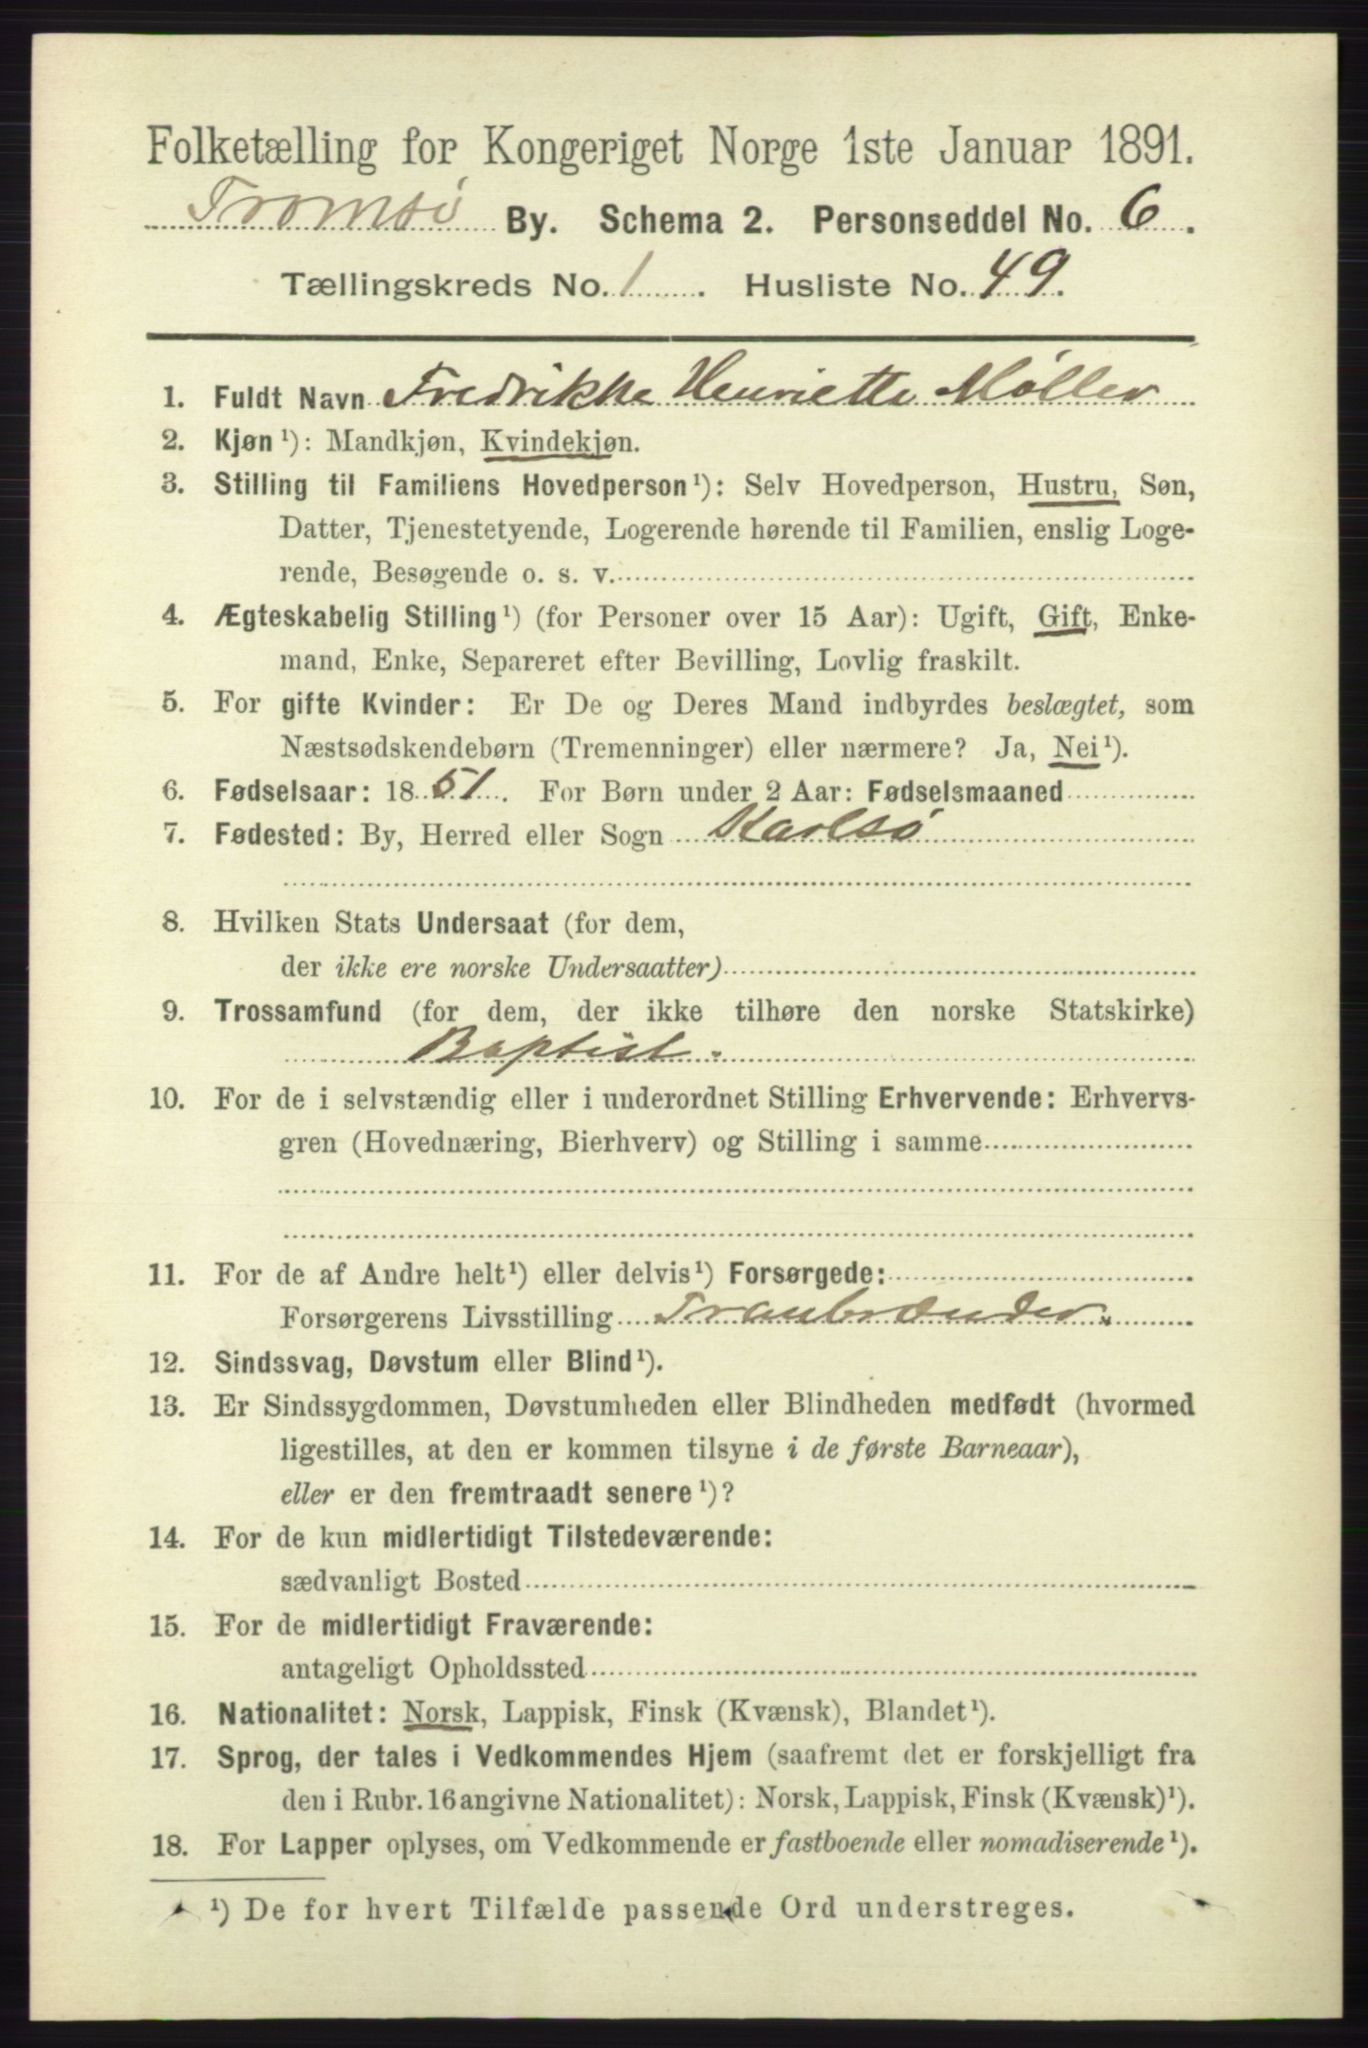 Folketælling for Kongeriget Norge 1ste Januar 1891.
Tromsø By. Schema 2. Personseddel No. 6.
Tællingskreds No. 1. Husliste No. 49.
1. Fuldt Navn Fredrikke Henriette Møller
2. Kjøn¹): Mandkjøn, Kvindekjøn.
3. Stilling til Familiens Hovedperson¹): Selv Hovedperson, Hustru, Søn,
Datter, Tjenestetyende, Logerende hørende til Familien, enslig Loge-
rende, Besøgende o. s. v.
4. Ægteskabelig Stilling¹) (for Personer over 15 Aar): Ugift, Gift, Enke-
mand, Enke, Separeret efter Bevilling, Lovlig fraskilt.
5. For gifte Kvinder: Er De og Deres Mand indbyrdes beslægtet, som
Næstsødskendebørn (Tremenninger) eller nærmere? Ja, Nei¹).
6. Fødselsaar: 1851. For Børn under 2 Aar: Fødselsmaaned
7. Fødested: By, Herred eller Sogn Karlsø
8. Hvilken Stats Undersaat (for dem,
der ikke ere norske Undersaatter)
9. Trossamfund (for dem, der ikke tilhøre den norske Statskirke)
Baptist.
10. For de i selvstændig eller i underordnet Stilling Erhvervende: Erhvervs-
gren (Hovednæring, Bierhverv) og Stilling i samme
11. For de af Andre helt¹) eller delvis¹) Forsørgede:
Forsørgerens Livsstilling Tranbrænder.
12. Sindssvag, Døvstum eller Blind¹).
13. Er Sindssygdommen, Døvstumheden eller Blindheden medfødt (hvormed
ligestilles, at den er kommen tilsyne i de første Barneaar),
eller er den fremtraadt senere¹)?
14. For de kun midlertidigt Tilstedeværende:
sædvanligt Bosted
15. For de midlertidigt Fraværende:
antageligt Opholdssted
16. Nationalitet: Norsk, Lappisk, Finsk (Kvænsk), Blandet¹).
17. Sprog, der tales i Vedkommendes Hjem (saafremt det er forskjelligt fra
den i Rubr. 16 angivne Nationalitet): Norsk, Lappisk, Finsk (Kvænsk)¹).
18. For Lapper oplyses, om Vedkommende er fastboende eller nomadiserende¹).
¹) De for hvert Tilfælde passende Ord understreges.